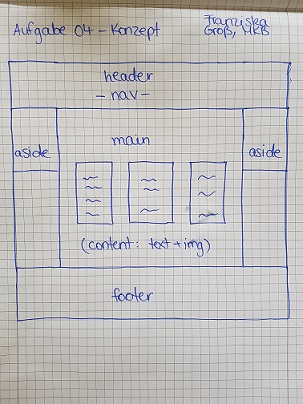 Aufgabe 04 - Konzept
Franziska
Groß, MKB
header
- nav -
aside
main
aside
(content: text + img)
footer